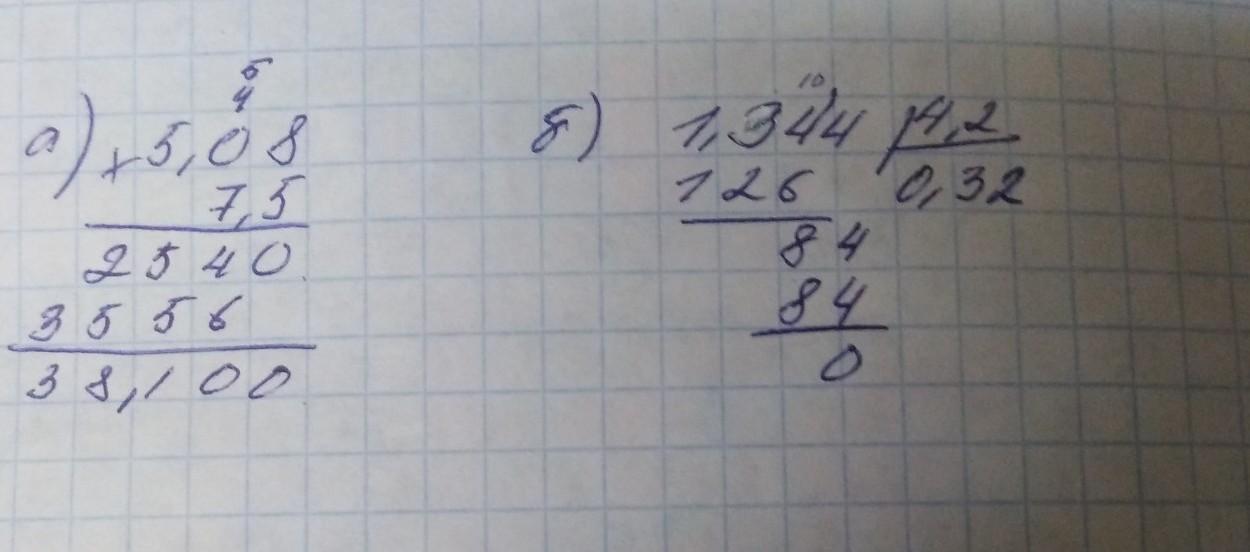 5
4
а) × 5,08
7,5
2540
3556
38,100
б) 10
1,344 4,2
126 0,32
84
84
0